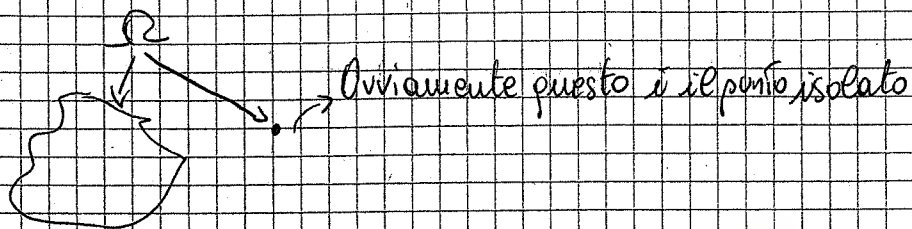 Ω
Ovviamente questo è il punto isolato